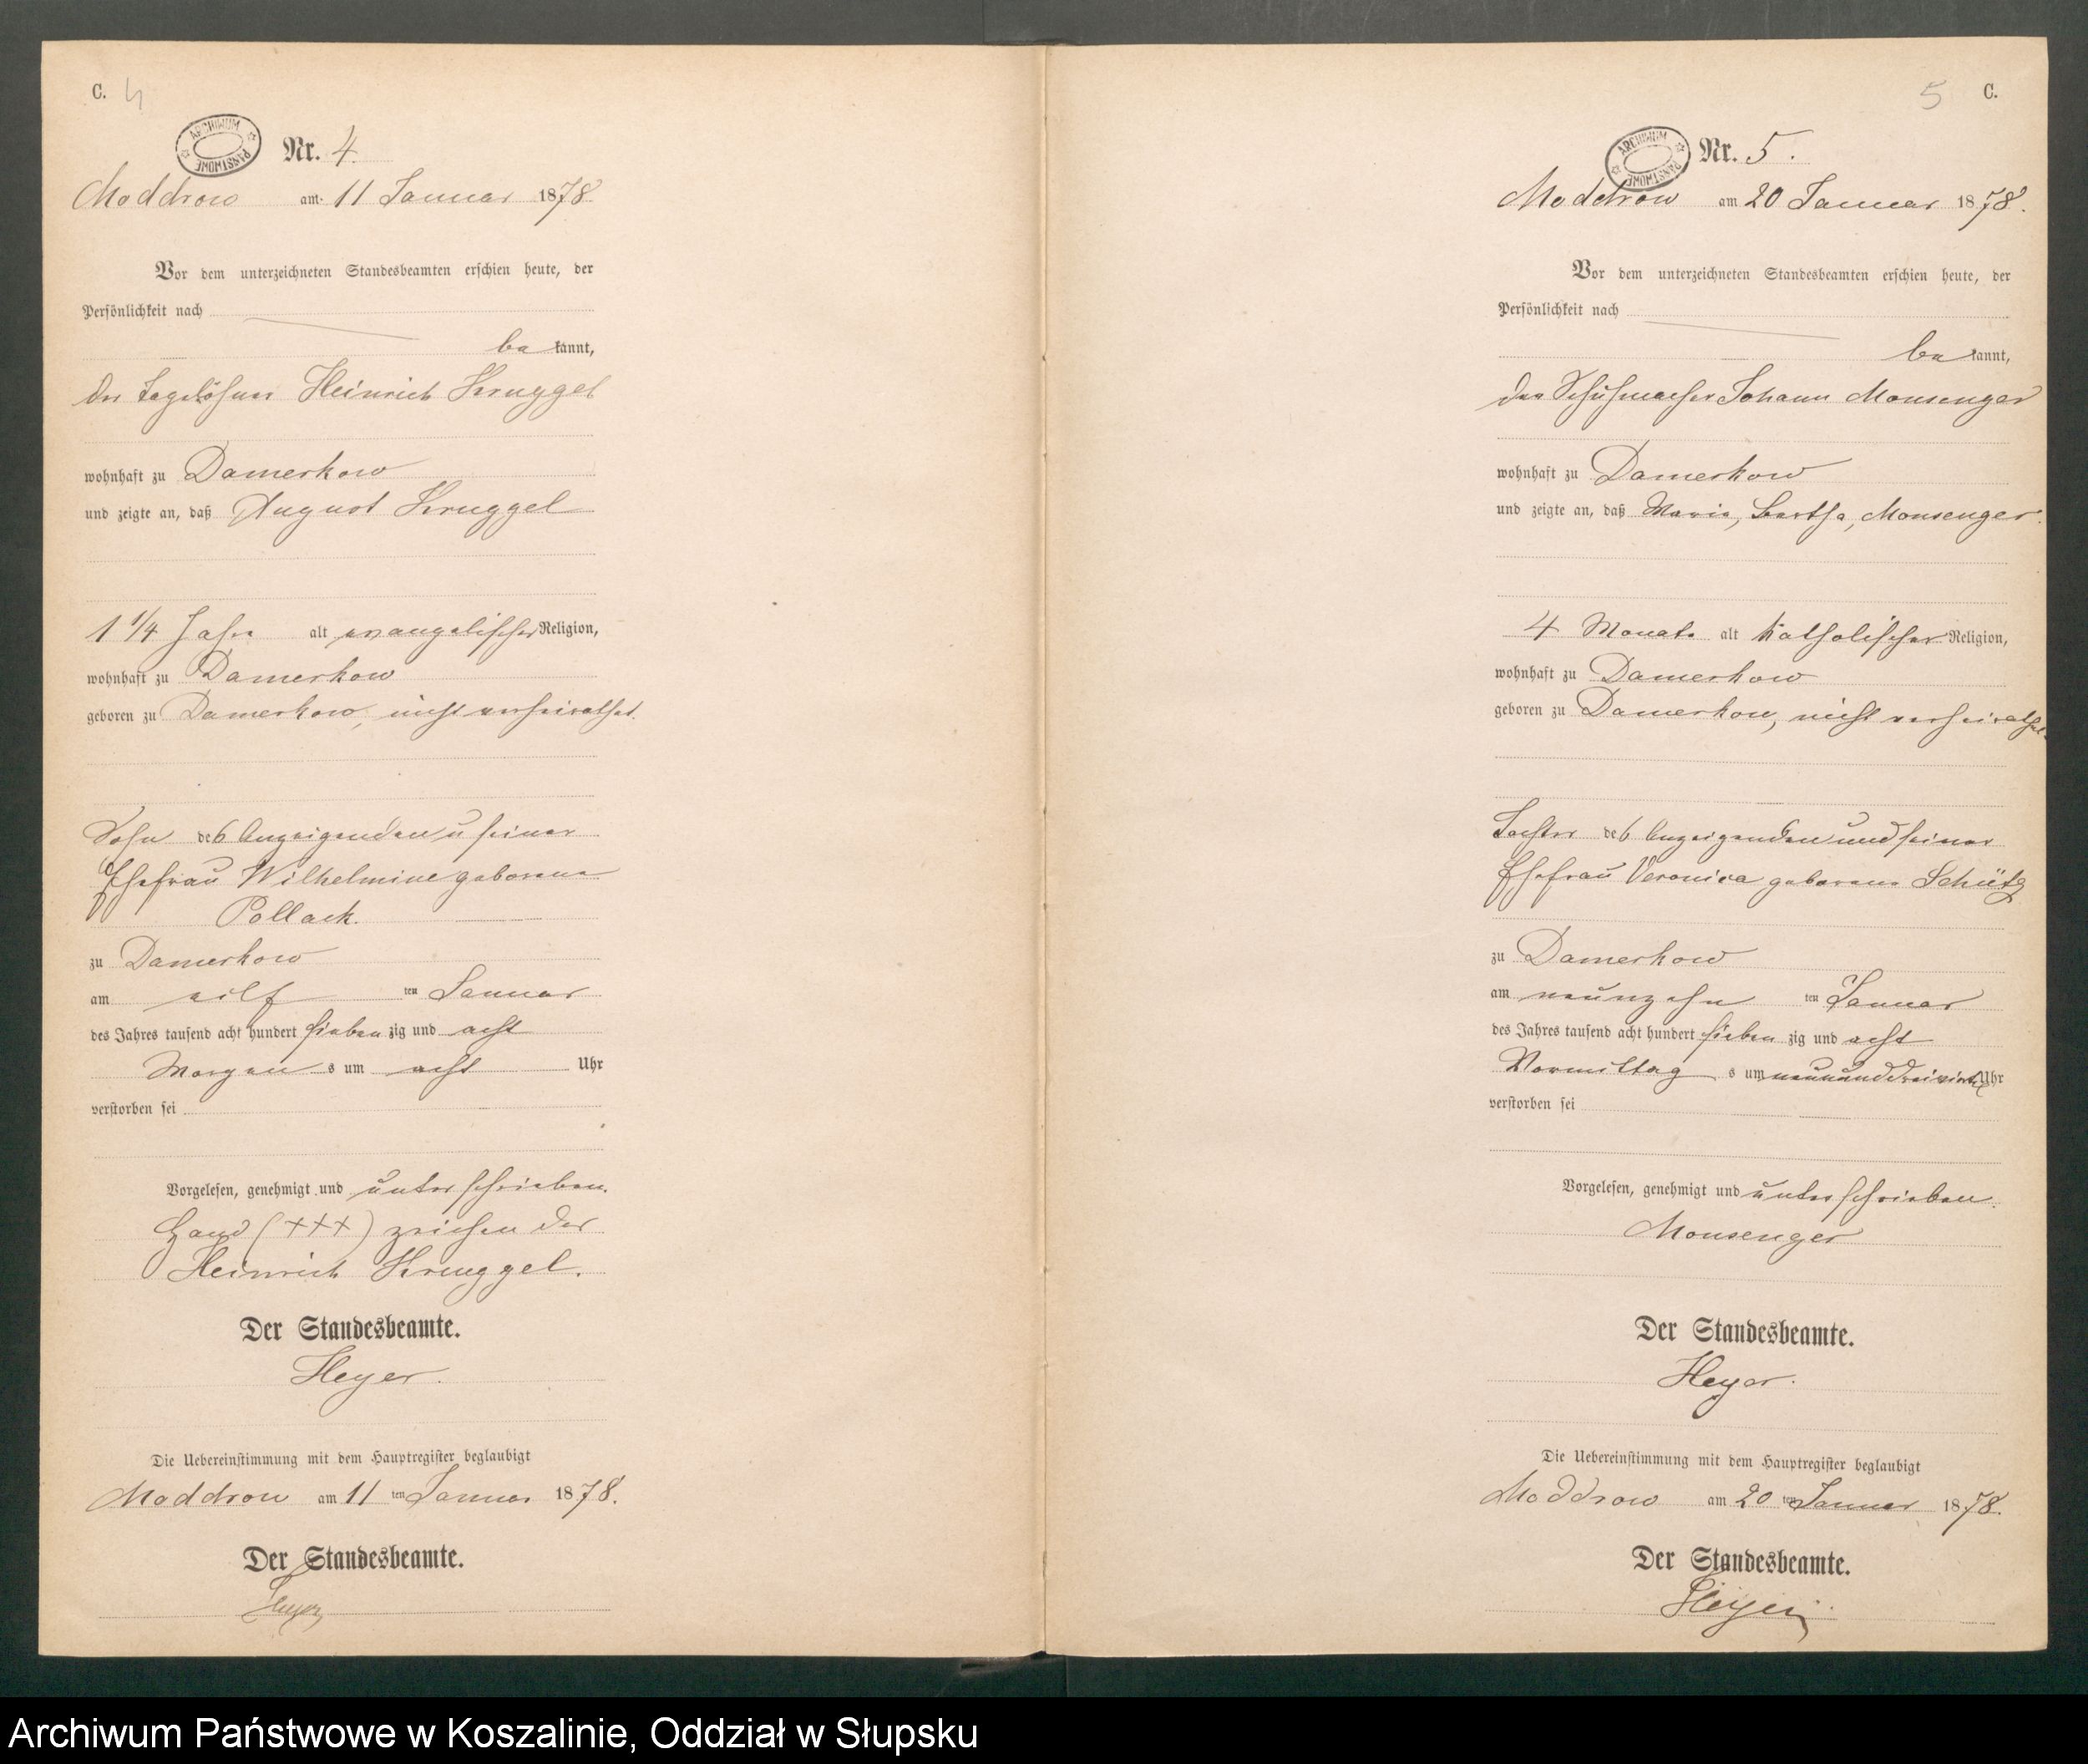 C. 4
ARCHIWUM PAŃSTWOWE
Nr. 4.
Moddrow am 11 Januar 1878.
Vor dem unterzeichneten Standesbeamten erschien heute, der
Persönlichkeit nach
be kannt,
der Tagelöhner Heinrich Kruggel
wohnhaft zu Damerkow
und zeigte an, daß August Kruggel
1 1/4 Jahr alt evangelischer Religion,
wohnhaft zu Damerkow
geboren zu Damerkow, nicht verheirathet.
Sohn des Anzeigenden u seiner
Ehefrau Wilhelmine geborene
Pollack.
zu Damerkow
am eilf ten Januar
des Jahres tausend acht hundert sieben zig und acht
Morgen s um acht Uhr
verstorben sei
Vorgelesen, genehmigt und unterschrieben.
Hand (+++) zeichen des
Heinrich Kruggel.
Der Standesbeamte.
Heyer.
Die Uebereinstimmung mit dem Hauptregister beglaubigt
Moddrow am 11 ten Januar 1878.
Der Standesbeamte.
Heyer
5 C.
ARCHIWUM PAŃSTWOWE
Nr. 5.
Moddrow am 20 Januar 1878.
Vor dem unterzeichneten Standesbeamten erschien heute, der
Persönlichkeit nach
be kannt,
der Schuhmacher Johann Monsenger
wohnhaft zu Damerkow
und zeigte an, daß Maria, Bertha, Monsenger.
4 Monate alt katholischer Religion,
wohnhaft zu Damerkow
geboren zu Damerkow, nicht verheirathet.
Tochter des Anzeigenden und seiner
Ehefrau Veronica geborene Schütz
zu Damerkow
am neunzehn ten Januar
des Jahres tausend acht hundert sieben zig und acht
Vormittag s um neununddreiviertel Uhr
verstorben sei
Vorgelesen, genehmigt und unterschrieben.
Monsenger
Der Standesbeamte.
Heyer.
Die Uebereinstimmung mit dem Hauptregister beglaubigt
Moddrow am 20 ten Januar 1878.
Der Standesbeamte.
Heyer
Archiwum Państwowe w Koszalinie, Oddział w Słupsku